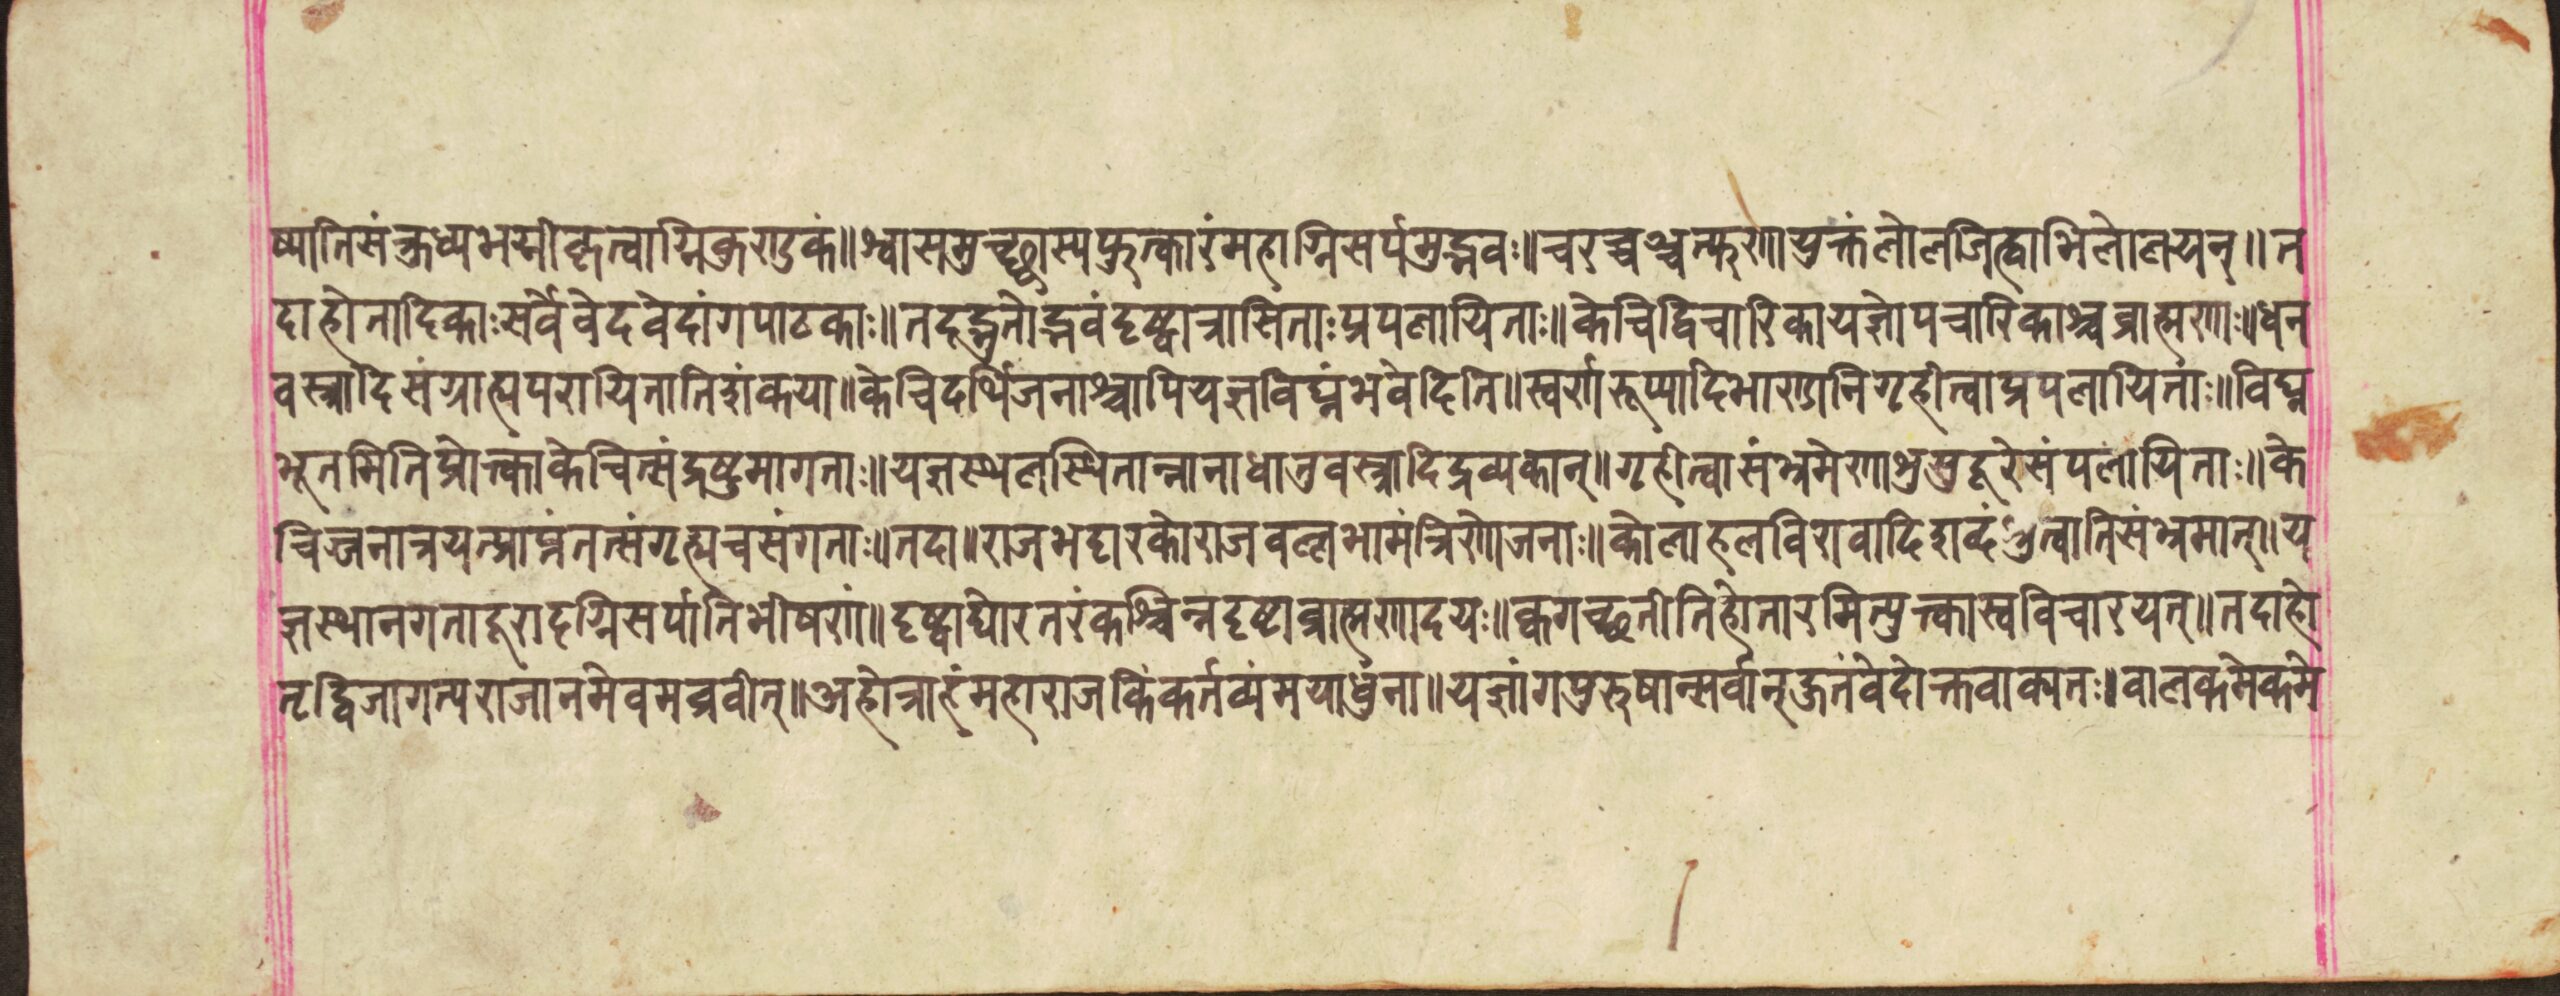 ष्यातिसंक्रुध्यभस्मीकृत्वाग्निकुण्डकं॥श्वासमुच्छ्वास्यफुत्कारंमहाग्निसर्पमुद्भवः॥चरच्चञ्चत्फणायुक्तंलोलजित्ह्वाभिलोलयन्॥त
दाहोतादिकाःसर्वेवेदवेदांगपाठकाः॥तदद्भुतोद्भवंदृष्ट्वात्रासिताःप्रपलायिताः॥केचिद्विचारिकायज्ञोपचारिकाश्चब्राह्मणाः॥धन
वस्त्रादिसंग्राह्यपरायितातिशंकया॥केचिदर्थिजनाश्चापियज्ञविघ्नंभवेदिति॥स्वर्णरूप्यादिभाण्डानिगृहीत्वाप्रपलायिताः॥विघ्न
भूतमितिप्रोक्त्वाकेचित्संद्रष्टुमागताः॥यज्ञस्थलस्थितान्नानाधातुवस्त्रादिद्रव्यकान्॥गृहीत्वासंभ्रमेणाभुसुदूरेसंपलायिताः॥के
चिज्जनात्रयत्प्राप्तंतत्संगृह्यचसंगताः॥तदा॥राजभट्टारकोराजवल्लभामंत्रिणोजनाः॥कोलाहलविरावादिशब्दंश्रुत्वातिसंभ्रमात्॥य
ज्ञस्थानगतादूरादग्निसर्पातिभीषणं॥दृष्ट्वाघोरतरंकश्चिन्नदृष्टाब्राह्मणादयः॥क्वगच्छतीतिहोतारमित्युक्त्वास्वविचारयत्॥तदाहो
तृद्विजागत्यराजानमेवमब्रवीत्॥अहोत्राहंमहाराजकिंकर्तव्यंमयाधुना॥यज्ञांगपुरुषान्सर्वान्हुतंवेदोक्तवाक्यतः॥वालकमेकमे